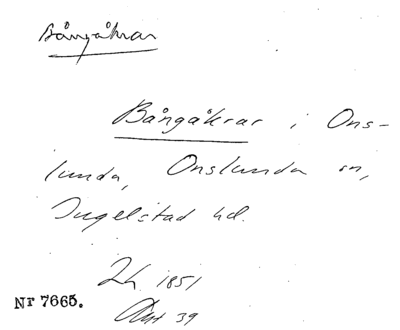 Bångåkrar
Bångåkrar i Ons-
lunda, Onslunda sn,
Ingelstad hd.
Lh 1851
Akt 39
Nr 7665.